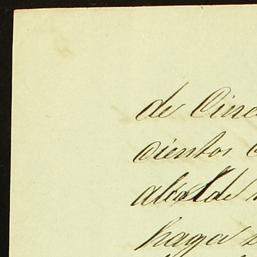 de Cinc
cientos
alcalde
haga